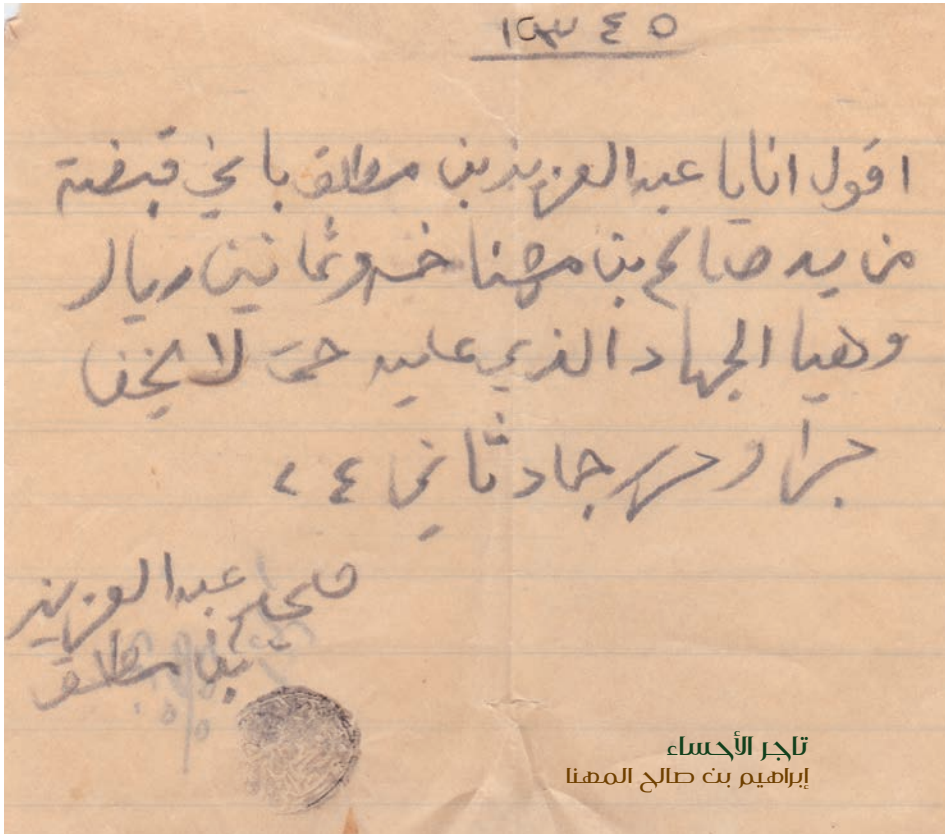 ١٣٤٥
اقول انا يا عبد العزيز بن مطلق باني قبضة
من يد صالح بن مهنا خمس وثمانين ريال
وهيا الجهاد الذي عليه حتى لا يخفى
جرا وحرر جماد ثاني ٤
عبد العزيز
بن مطلق
تاجر الأحساء
إبراهيم بن صالح المهنا